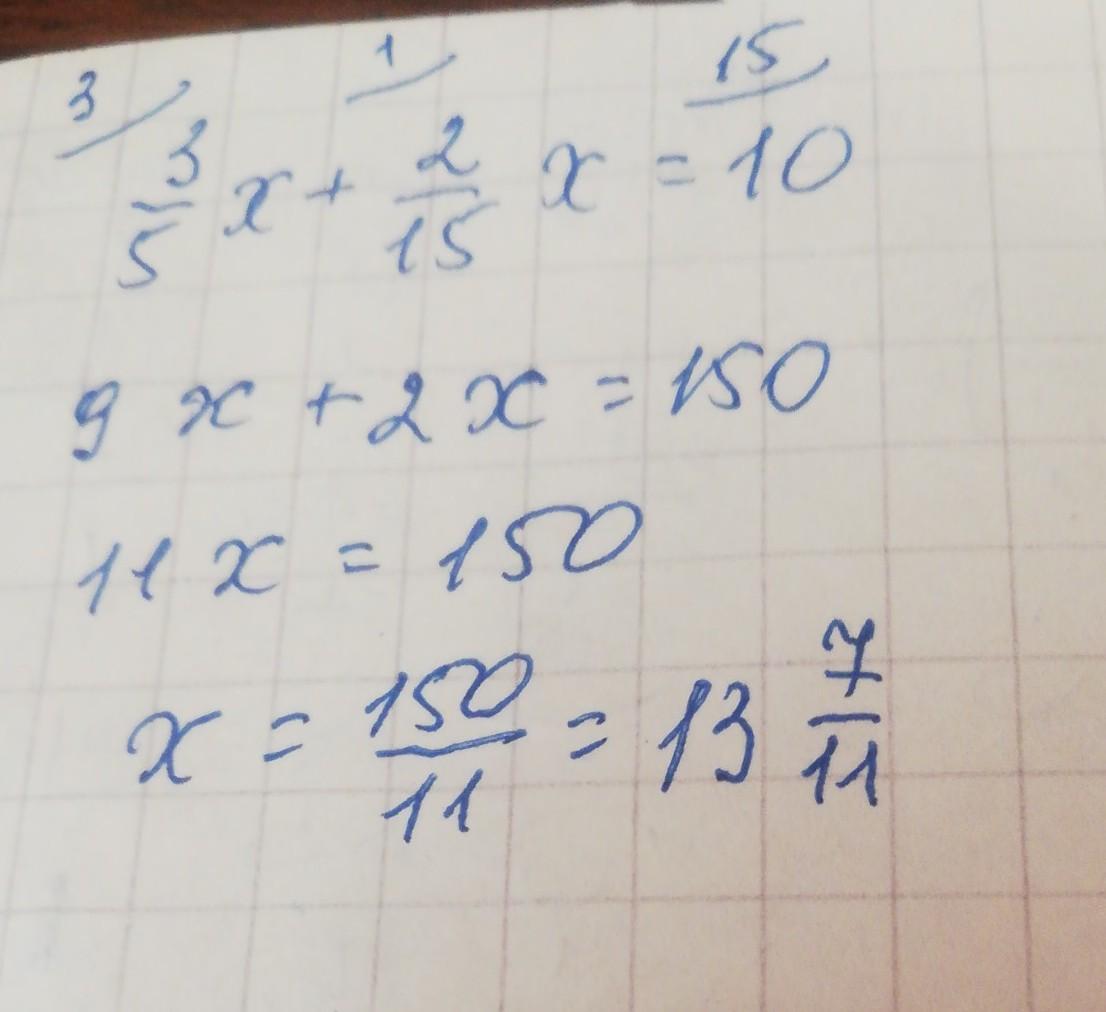 3 1 15
3/5 x + 2/15 x = 10
9 x + 2 x = 150
11 x = 150
x = 150/11 = 13 7/11